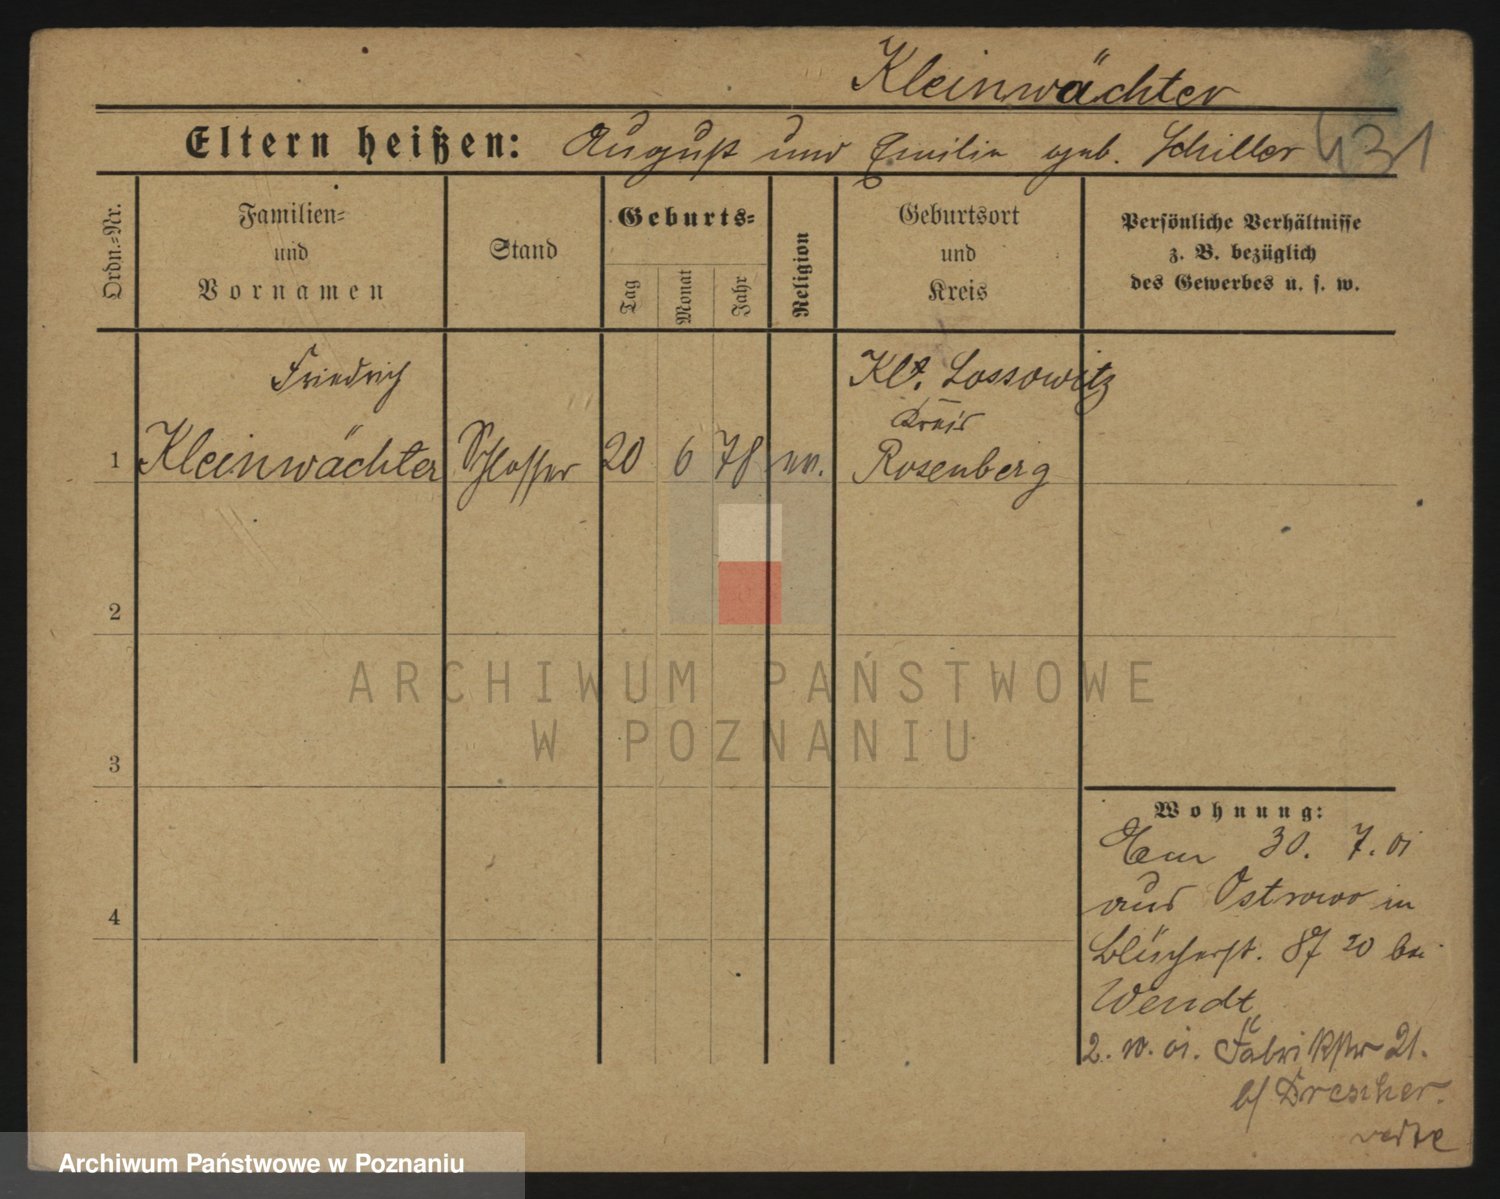 Kleinwächter
Eltern heißen: August und Emilie geb. Schiller 431
Ordn.=Nr.
Familien=
und
Vornamen
Stand
Geburts=
Tag
Monat
Jahr
Religion
Geburtsort
und
Kreis
Persönliche Verhältnisse
z. B. bezüglich
des Gewerbes u. s. w.
Friedrich
Klt. Lossowitz
Kreis
1 Kleinwächter Schlosser 20 6 78 ev. Rosenberg
2
3
4
Wohnung:
30. 7. 01
aus Ostrowo in
Blücherst. 20 bei
Wendt
2. 10. 01. Fabrikstr 21.
b/ Drescher.
ARCHIWUM PAŃSTWOWE
W POZNANIU
Archiwum Państwowe w Poznaniu